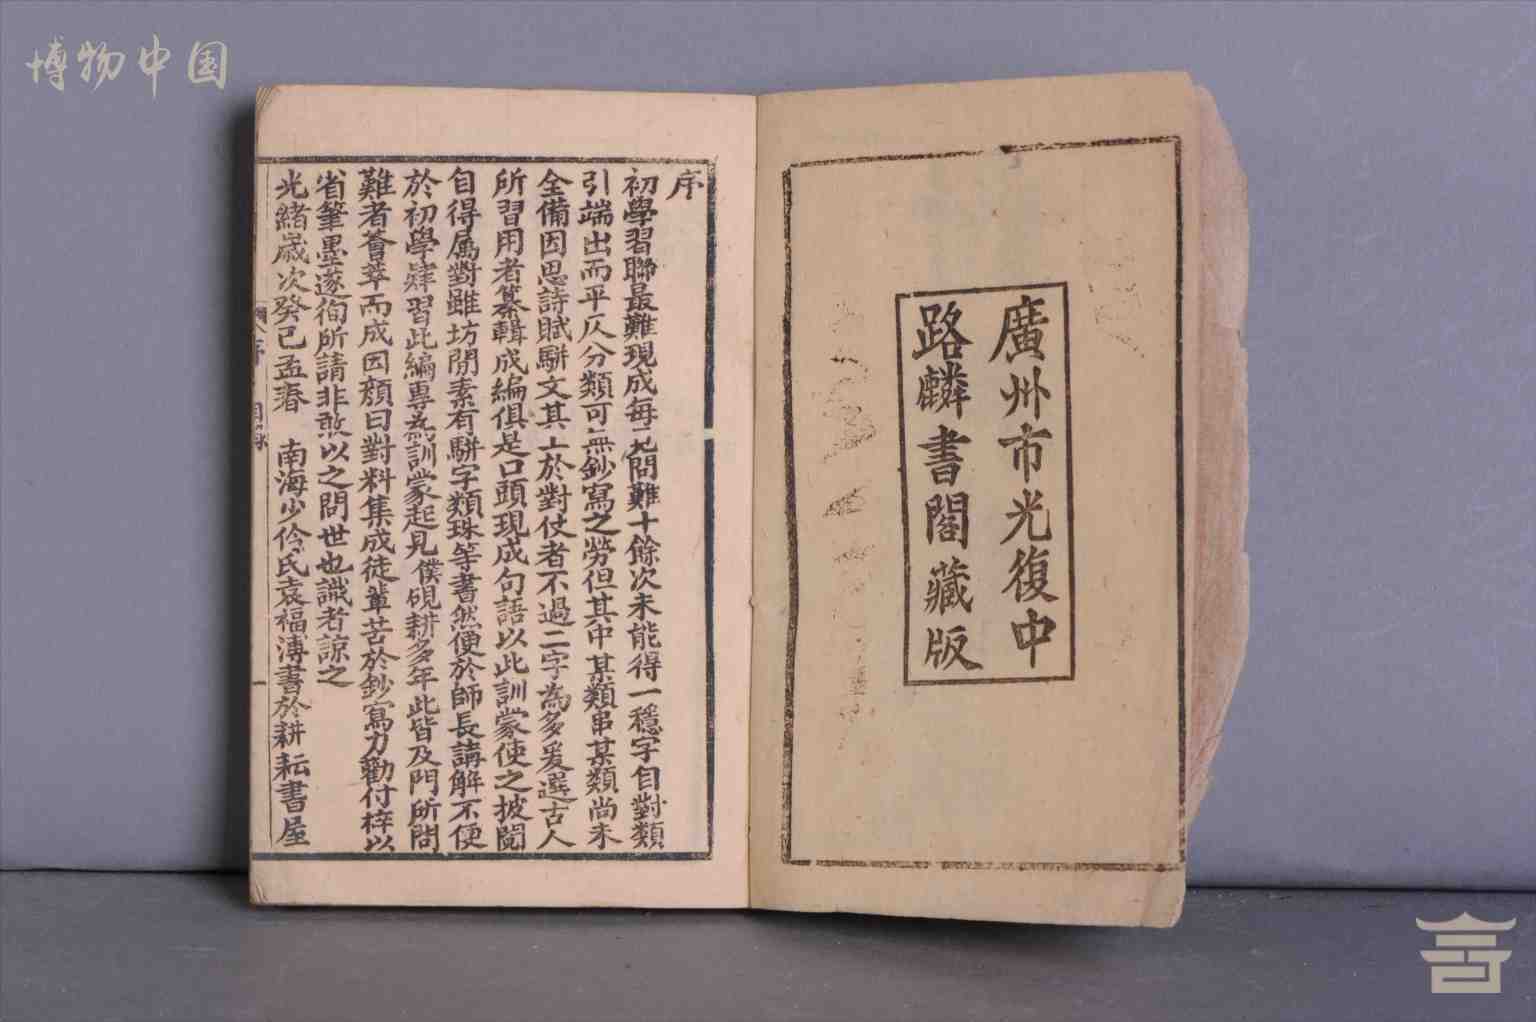 博物中国
廣州市光復中
路麟書閣藏版
序
初學習聯最難現成每見問難十餘次未能得一穩字自對類
引端出而平仄分類可無鈔寫之勞但其中某類串某類尚未
全備因思詩賦駢文其工於對仗者不過二字為多爰選古人
所習用者纂輯成編俱是口頭現成句語以此訓蒙使之披閱
自得屬對雖坊間素有駢字類珠等書然便於師長講解不便
於初學肄習此編專為訓蒙起見僕硯耕多年此皆及門所問
難者薈萃而成因顏曰對料集成徒輩苦於鈔寫力勸付梓以
省筆墨遂徇所請非敢以之問世也識者諒之
光緒歲次癸巳孟春 南海少伶氏袁福溥書於耕耘書屋
序 目錄
一